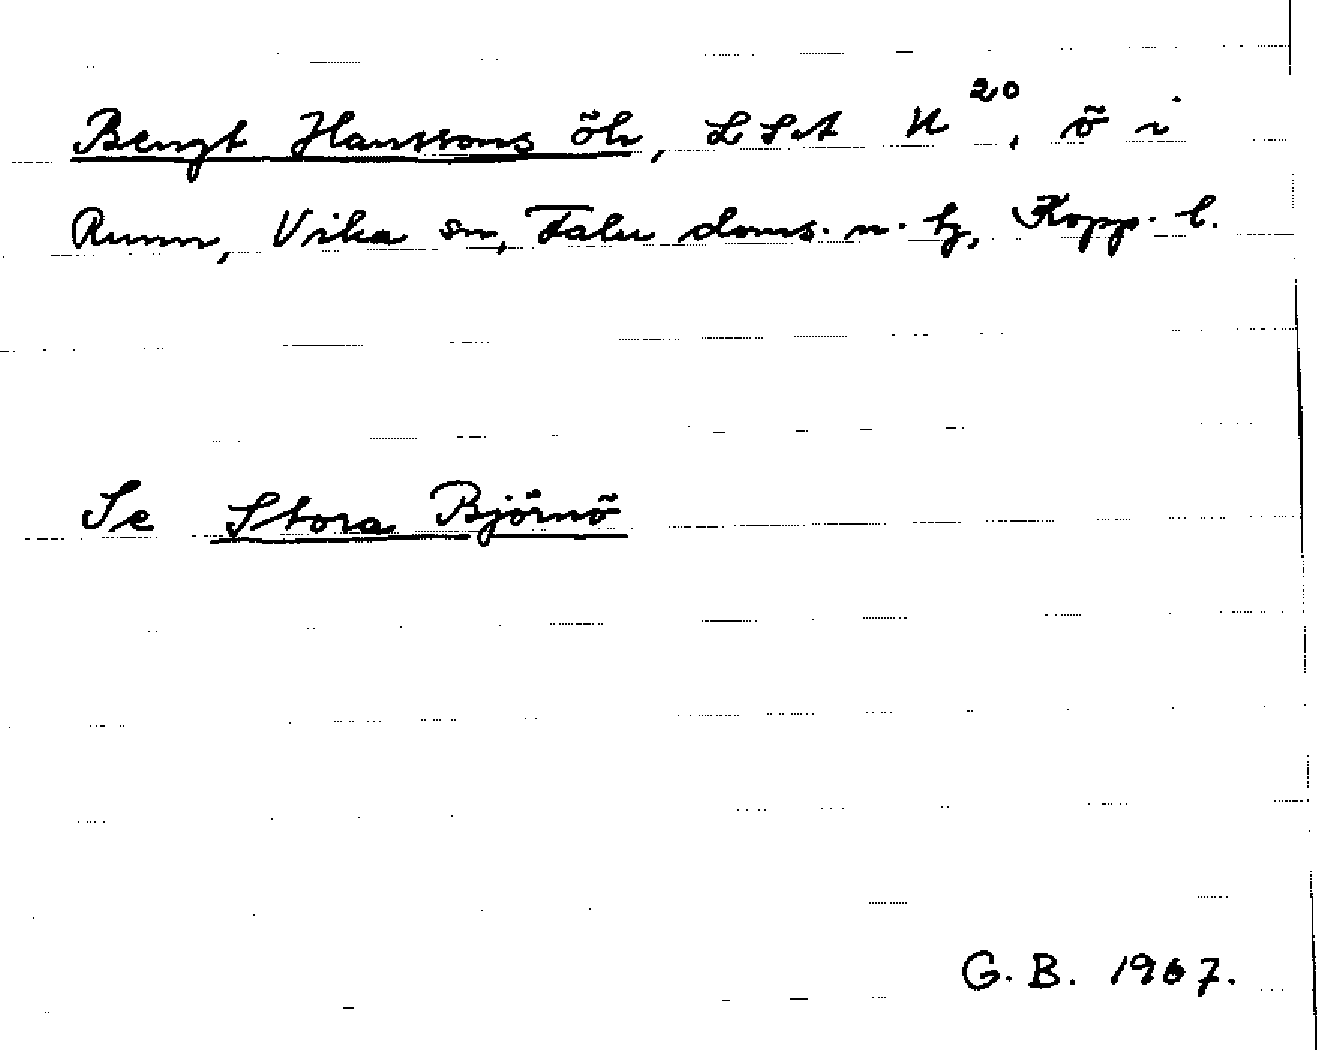 Bengt Hanssons öh, LSA K²⁰, ö i
Runn, Vika sn, Falu doms. n. tg, Kopp. l.
Se Stora Björnö
G. B. 1967.